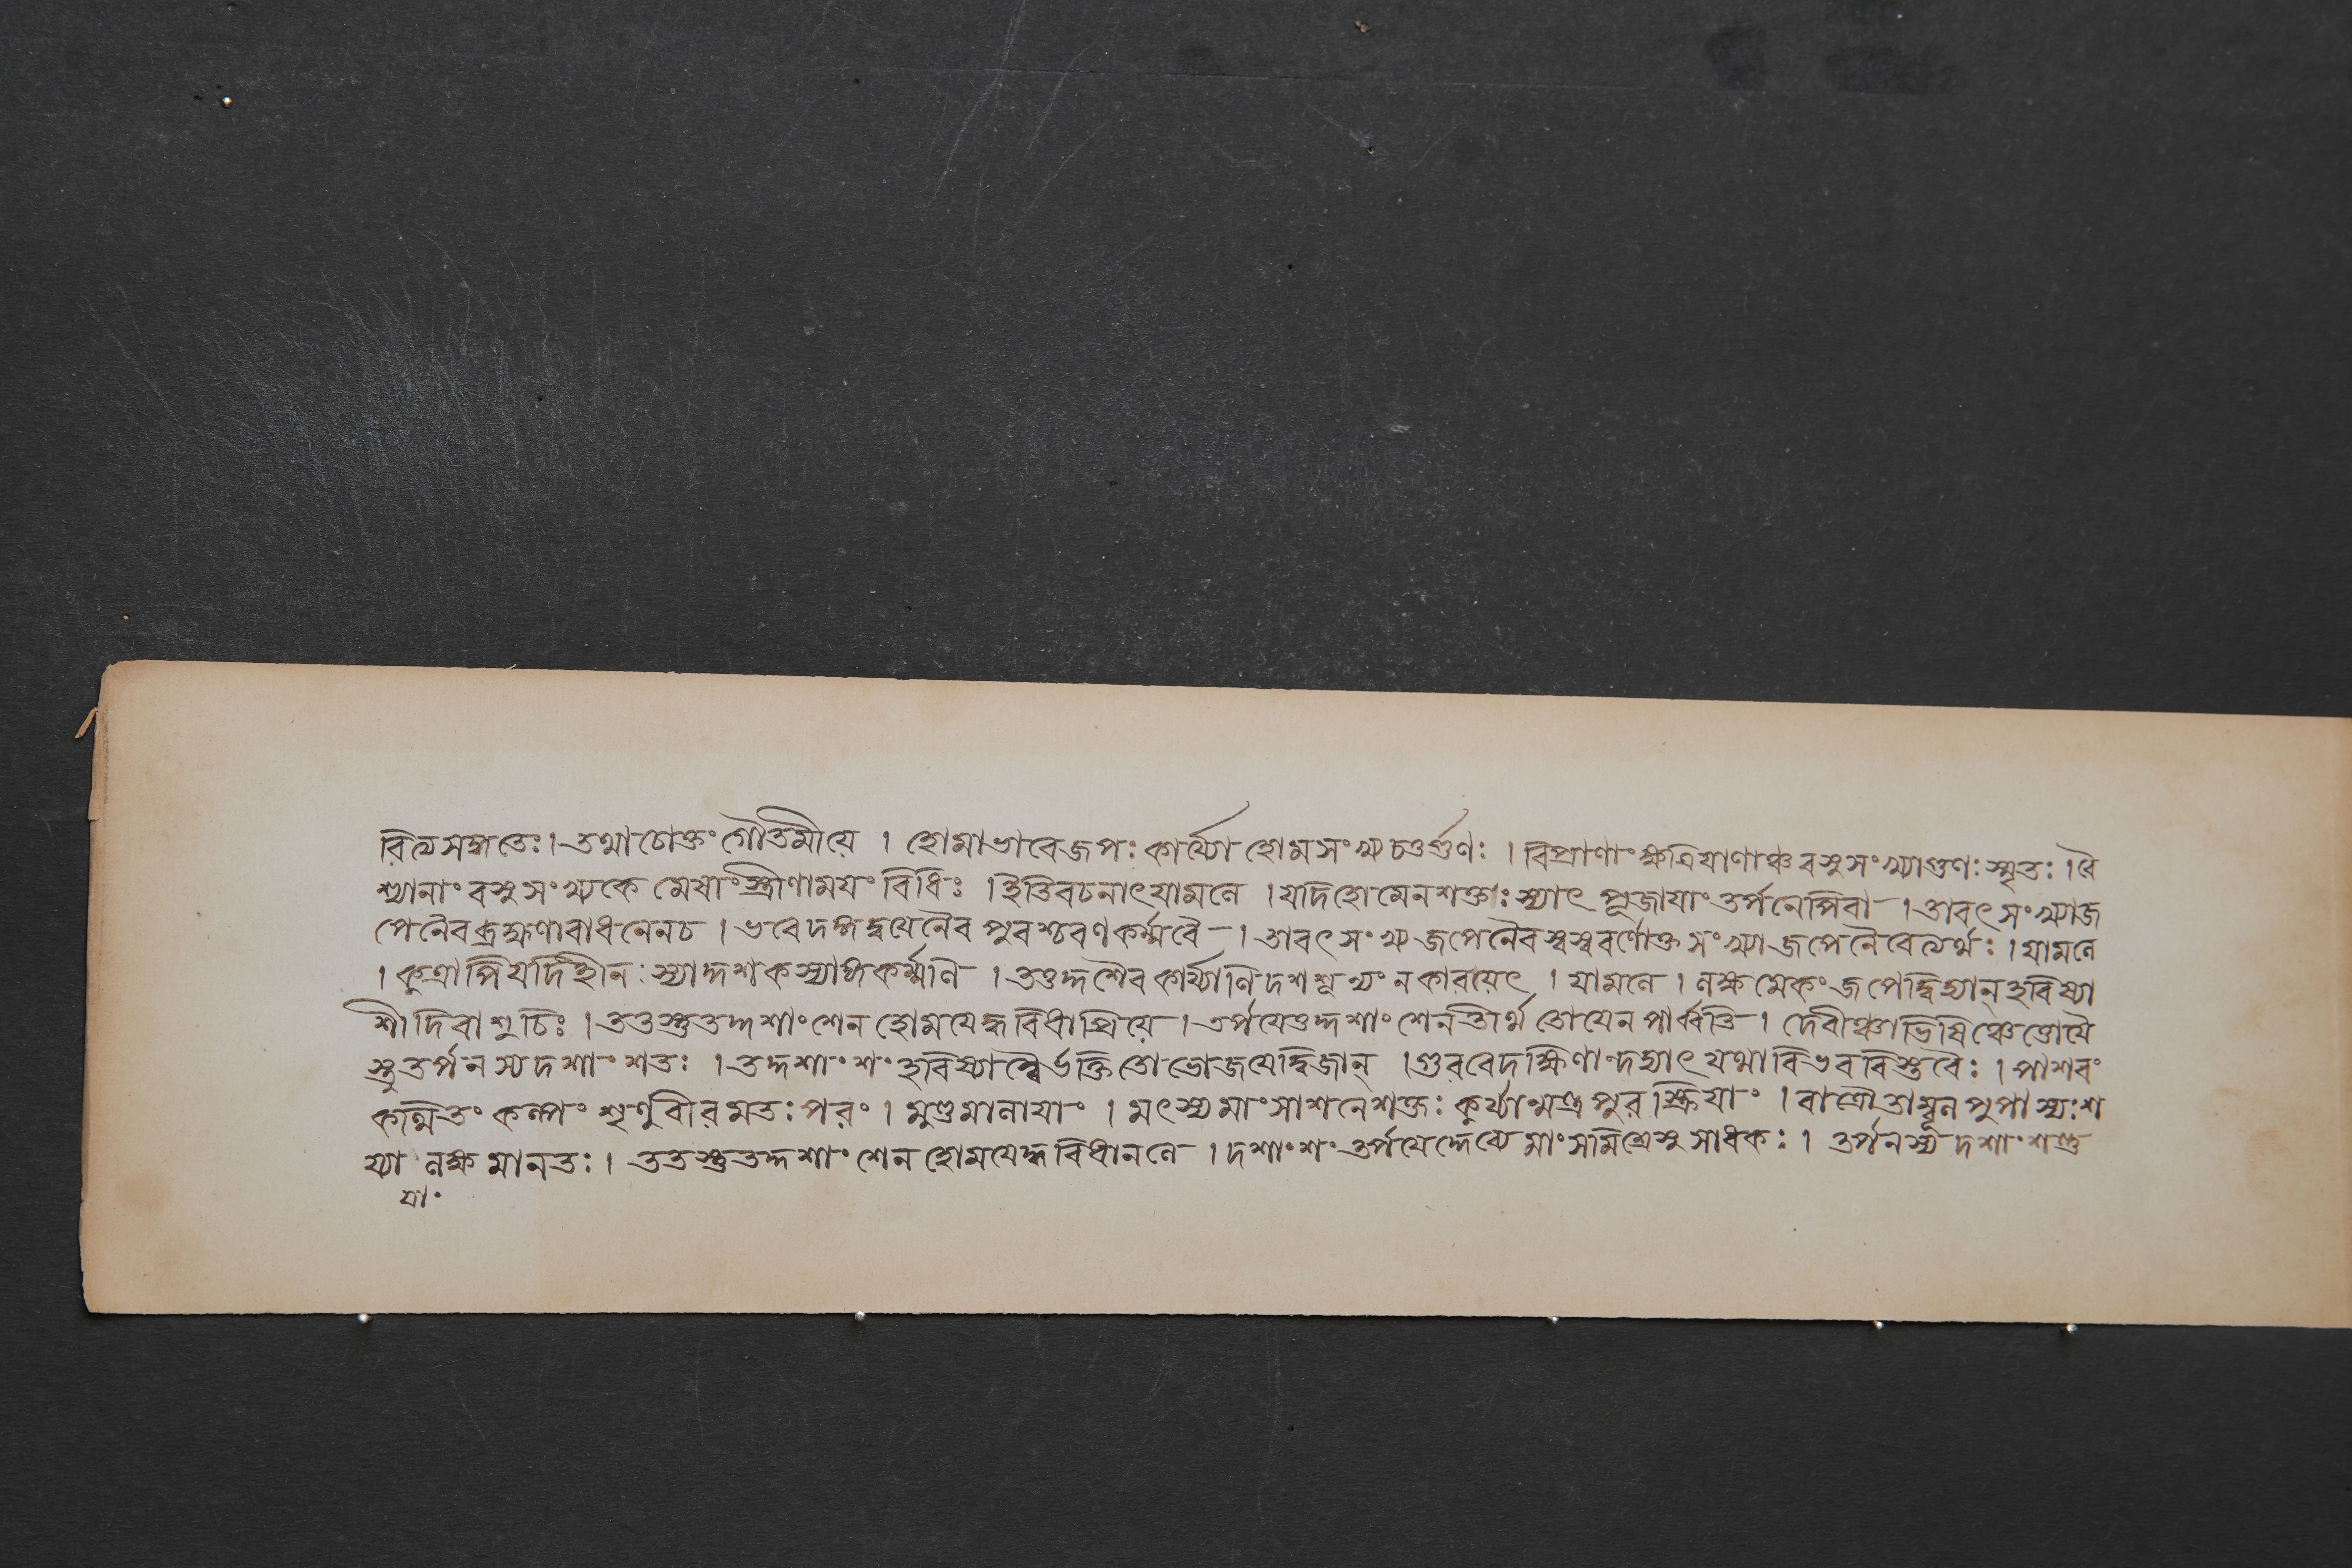 রিত্যসঙ্গতেঃ। তথাচোক্তং গৌতমীয়ে । হোমাভাবেজপঃ কার্য্যো হোমসংখ্য চতুর্গুণঃ । বিপ্রাণাং ক্ষত্রিযাণাঞ্চ বসুসংখ্যাগুণঃ স্মৃতঃ । বৈ
শ্যানাং বসুসংখ্যকে মেষাং স্ত্রীণামযং বিধিঃ । ইতিবচনাৎ যামলে । যদিহোমেনশক্তাঃ স্যাৎ পূজাযাং তর্পনেপিবা । তাবৎ সংখ্যাজ
পেনৈব ব্রাহ্মণাবাধনেনচ । ভবেদঙ্গদ্বযেনৈব পুরশ্চরণকর্ম্মবৈ । তাবৎ সংখ্য জপেনৈব স্বস্ববর্ণোক্ত সংখ্যাজপেনৈবেত্যর্থঃ । যামলে
। কুত্রাপি যদিহীনঃ স্যাদ্দশকস্যাঙ্গকর্ম্মণি । তত্তদ্দশৈব কার্য্যাণি দশ ন কারয়েৎ । যামলে । লক্ষমেকং জপেদ্বিদ্যান্ হবিষ্যা
শী দিবাশুচিঃ । ততস্তুতদ্দশাংশেন হোমযেদ্ধবিধাপ্রিয়ে । তর্পযেত্তদ্দশাংশেনতীর্থ তোযেন পার্ব্বতি । দেবীঞ্চাভিষিঞ্চেত্তোযৈ
স্তুতর্পনস্যদশাংশতঃ । তদ্দশাংশং হবিষ্যান্নৈর্ভক্তিতো ভোজযেদ্দ্বিজান্ । গুরবেদক্ষিণান্দদ্যাৎ যথাবিভববিস্তবৈঃ । পাশবং
কল্পিতং কল্পং শৃণুবীরমতঃ পরং । মুণ্ডমালাযাং । মৎস্যমাংসাশনেশক্তঃ কুর্য্যান্মন্ত্রপুরস্ক্রিযাং । রাত্রৌ তাম্বূল শ
য্যা লক্ষমানতঃ । ততস্তুতদ্দশাংশেন হোমযেদ্ধবিধাননে । দশাংশং তর্পযেদ্দেব্যৈ মাংসমিশ্রেসুসাধকঃ । তর্পনস্য দশাংশন্তু
যাং